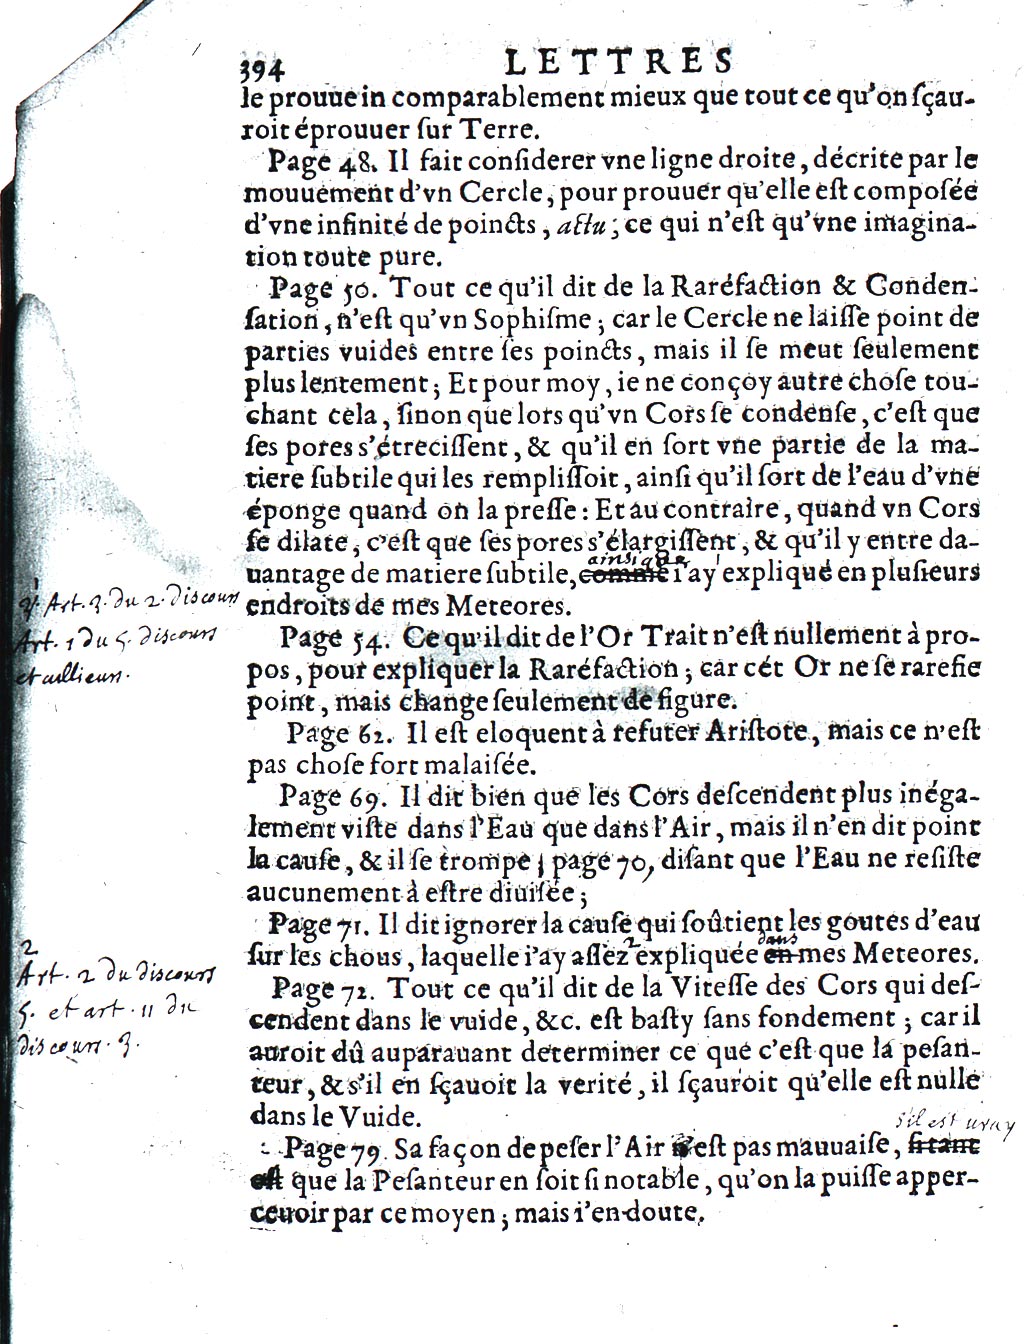 394 LETTRES
le prouue incomparablement mieux que tout ce qu'on sçau-
roit éprouuer sur Terre.
Page 48. Il fait considerer vne ligne droite, décrite par le
mouuement d'vn Cercle, pour prouuer qu'elle est composée
d'vne infinité de poincts, actu; ce qui n'est qu'vne imagina-
tion toute pure.
Page 50. Tout ce qu'il dit de la Raréfaction & Conden-
sation, n'est qu'vn Sophisme; car le Cercle ne laisse point de
parties vuides entre ses poincts, mais il se meut seulement
plus lentement; Et pour moy, ie ne conçoy autre chose tou-
chant cela, sinon que lors qu'vn Cors se condense, c'est que
ses pores s'étrecissent, & qu'il en sort vne partie de la ma-
tiere subtile qui les remplissoit, ainsi qu'il sort de l'eau d'vne
éponge quand on la presse: Et au contraire, quand vn Cors
se dilate, c'est que ses pores s'élargissent, & qu'il y entre da-
ainsi que
uantage de matiere subtile, comme i'ay expliqué en plusieurs
endroits de mes Meteores.
Art. 3. du 2. discours
Art. 1 du 5. discours
et allieurs.
Page 54. Ce qu'il dit de l'Or Trait n'est nullement à pro-
pos, pour expliquer la Raréfaction; car cét Or ne se rarefie
point, mais change seulement de figure.
Page 62. Il est eloquent à refuter Aristote, mais ce n'est
pas chose fort malaisée.
Page 69. Il dit bien que les Cors descendent plus inéga-
lement viste dans l'Eau que dans l'Air, mais il n'en dit point
la cause, & il se trompe; page 70, disant que l'Eau ne resiste
aucunement à estre diuisée;
Page 71. Il dit ignorer la cause qui soûtient les goutes d'eau
2 dans
sur les chous, laquelle i'ay assez expliquée en mes Meteores.
2
Art. 2 du discours
5. et art. 11 du
discours. 3.
Page 72. Tout ce qu'il dit de la Vitesse des Cors qui des-
cendent dans le vuide, &c. est basty sans fondement; car il
auroit dû auparauant determiner ce que c'est que la pesan-
teur, & s'il en sçauoit la verité, il sçauroit qu'elle est nulle
dans le Vuide.
s'il est uray
Page 79. Sa façon de peser l'Air n'est pas mauuaise, si tant
est que la Pesanteur en soit si notable, qu'on la puisse apper-
ceuoir par ce moyen; mais i'en doute.